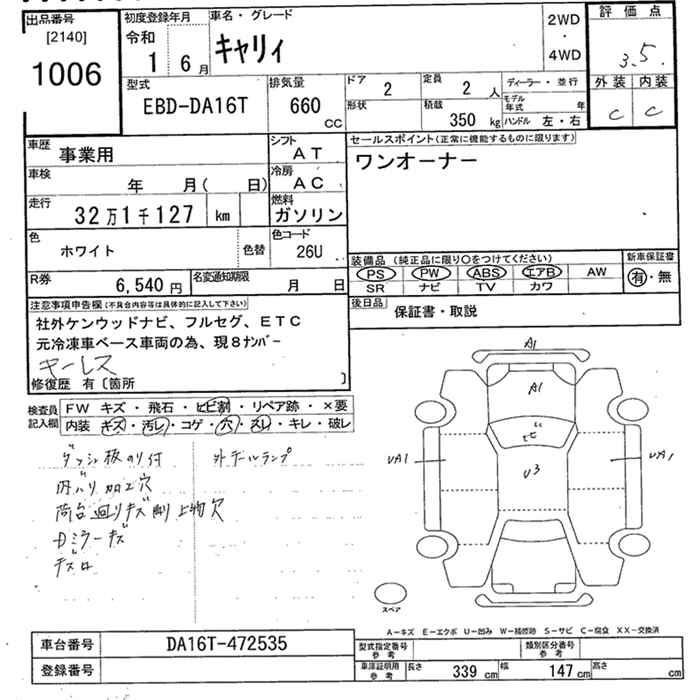 出品番号
[2140]
1006
初度登録年月
令和
1 6月
車名・グレード
キャリィ
2WD
・
4WD
評価点
3.5
外装 内装
C C
型式
EBD-DA16T
排気量
660
CC
ドア 2
形状
定員 2 人
積載 350 kg
ディーラー・並行
モデル年式 年
ハンドル 左・右
車歴 事業用
シフト AT
車検 年 月( 日)
冷房 AC
走行 32万1千127 km
燃料 ガソリン
色 ホワイト
色替
色コード 26U
R券 6,540円
名変通知期限 月 日
セールスポイント(正常に機能するものに限ります)
ワンオーナー
装備品 (純正品に限り〇をつけてください)
PS PW ABS エアB AW
SR ナビ TV カワ
新車保証書
有・無
後日品 保証書・取説
注意事項申告欄(不具合内容等は具体的に記入して下さい)
社外ケンウッドナビ、フルセグ、ETC
元冷凍車ベース車両の為、現8ナンバー
キーレス
修復歴 有〔箇所 〕
検査員記入欄
FW キズ・飛石・ヒビ割・リペア跡・×要
内装 キズ・汚レ・コゲ・穴・スレ・キレ・破レ
ダッシュ板のり付
内バリ加工穴
荷台回りキズ 上物欠
Dミラーキズ
外デールランプ
A1
A1
ヒビ
U3
UA1
UA1
スペア
A-キズ E-エクボ U-凹み W-補修跡 S-サビ C-腐食 XX-交換済
車台番号 DA16T-472535
登録番号
型式指定番号 参考
類別区分番号 参考
車庫証明用 参考
長さ 339 cm
幅 147 cm
高さ cm